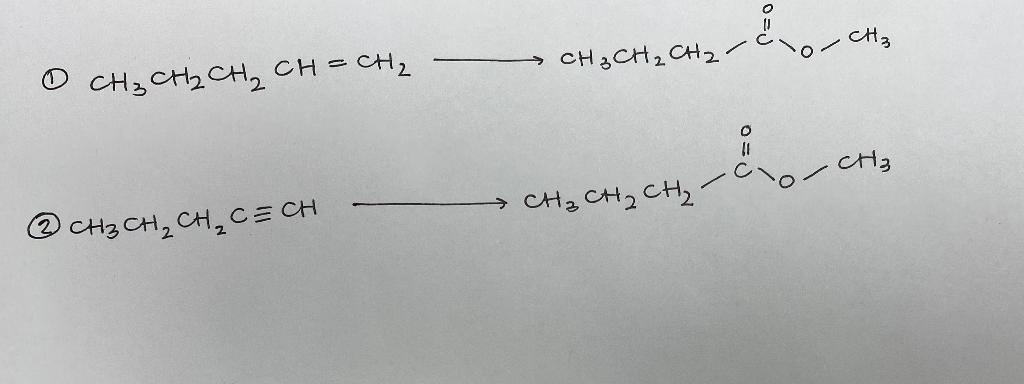 ① CH₃CH₂CH₂CH=CH₂ ⟶ CH₃CH₂CH₂-C(=O)-O-CH₃
② CH₃CH₂CH₂C≡CH ⟶ CH₃CH₂CH₂-C(=O)-O-CH₃